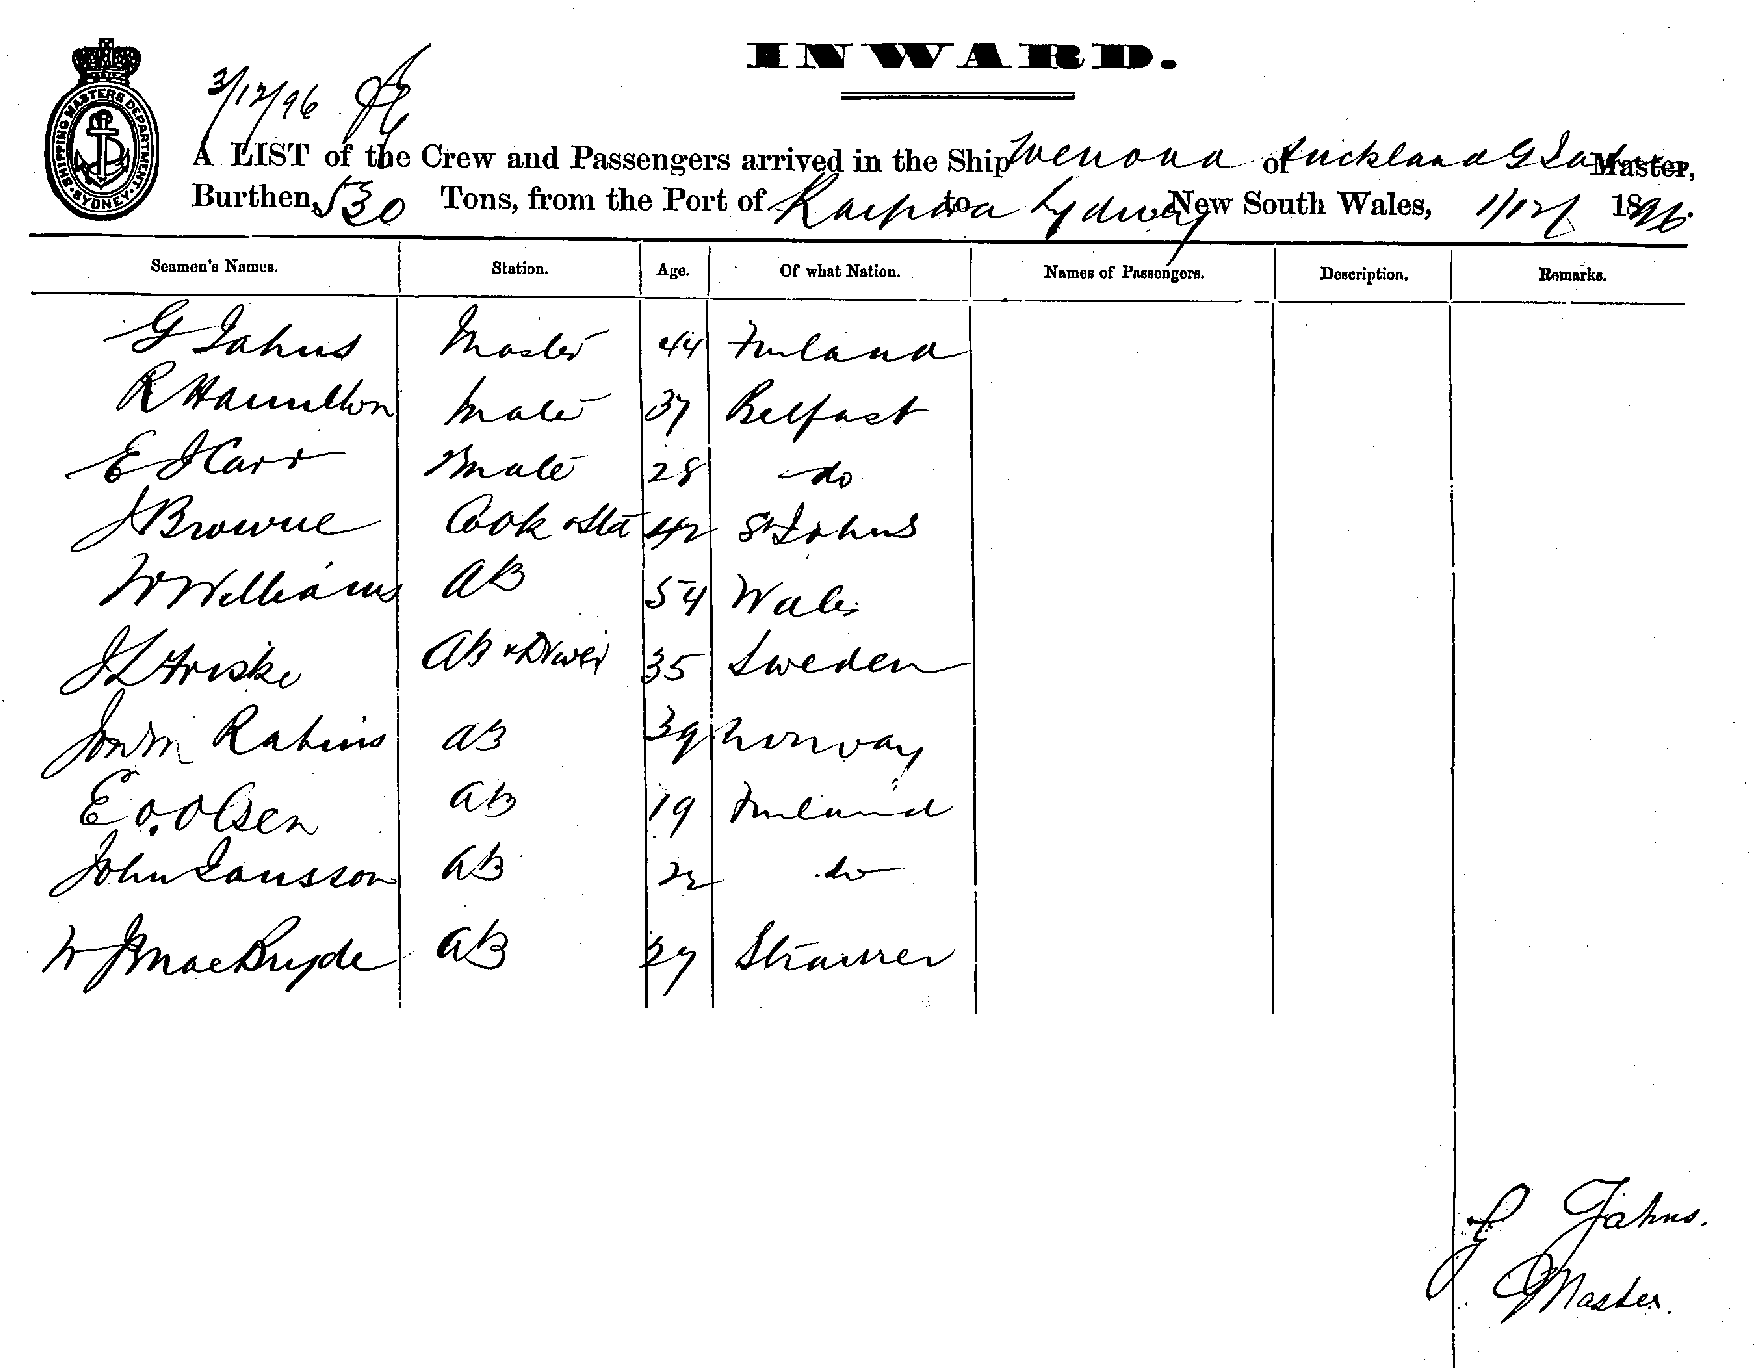 INWARD.
SHIPPING MASTERS DEPARTMENT. SYDNEY.
3/12/96
A LIST of the Crew and Passengers arrived in the Ship Wenona of Auckland G Jahns Master,
Burthen 530 Tons, from the Port of Kaipara to Sydney New South Wales, 1/12/ 1896.
Seamen's Names. Station. Age. Of what Nation. Names of Passengers. Description. Remarks.
G Jahns Master 44 Finland
R Hamilton Mate 37 Belfast
E J Carr Mate 28 do
J Browne Cook & Std 42 St Johns
W Williams AB 54 Wales
J L Friske AB & Driver 35 Sweden
Rabins AB 39 Norway
E. O. Olsen AB 19 Finland
John Jansson AB 22 do
W J MacBryde AB 27
G Jahns.
Master.